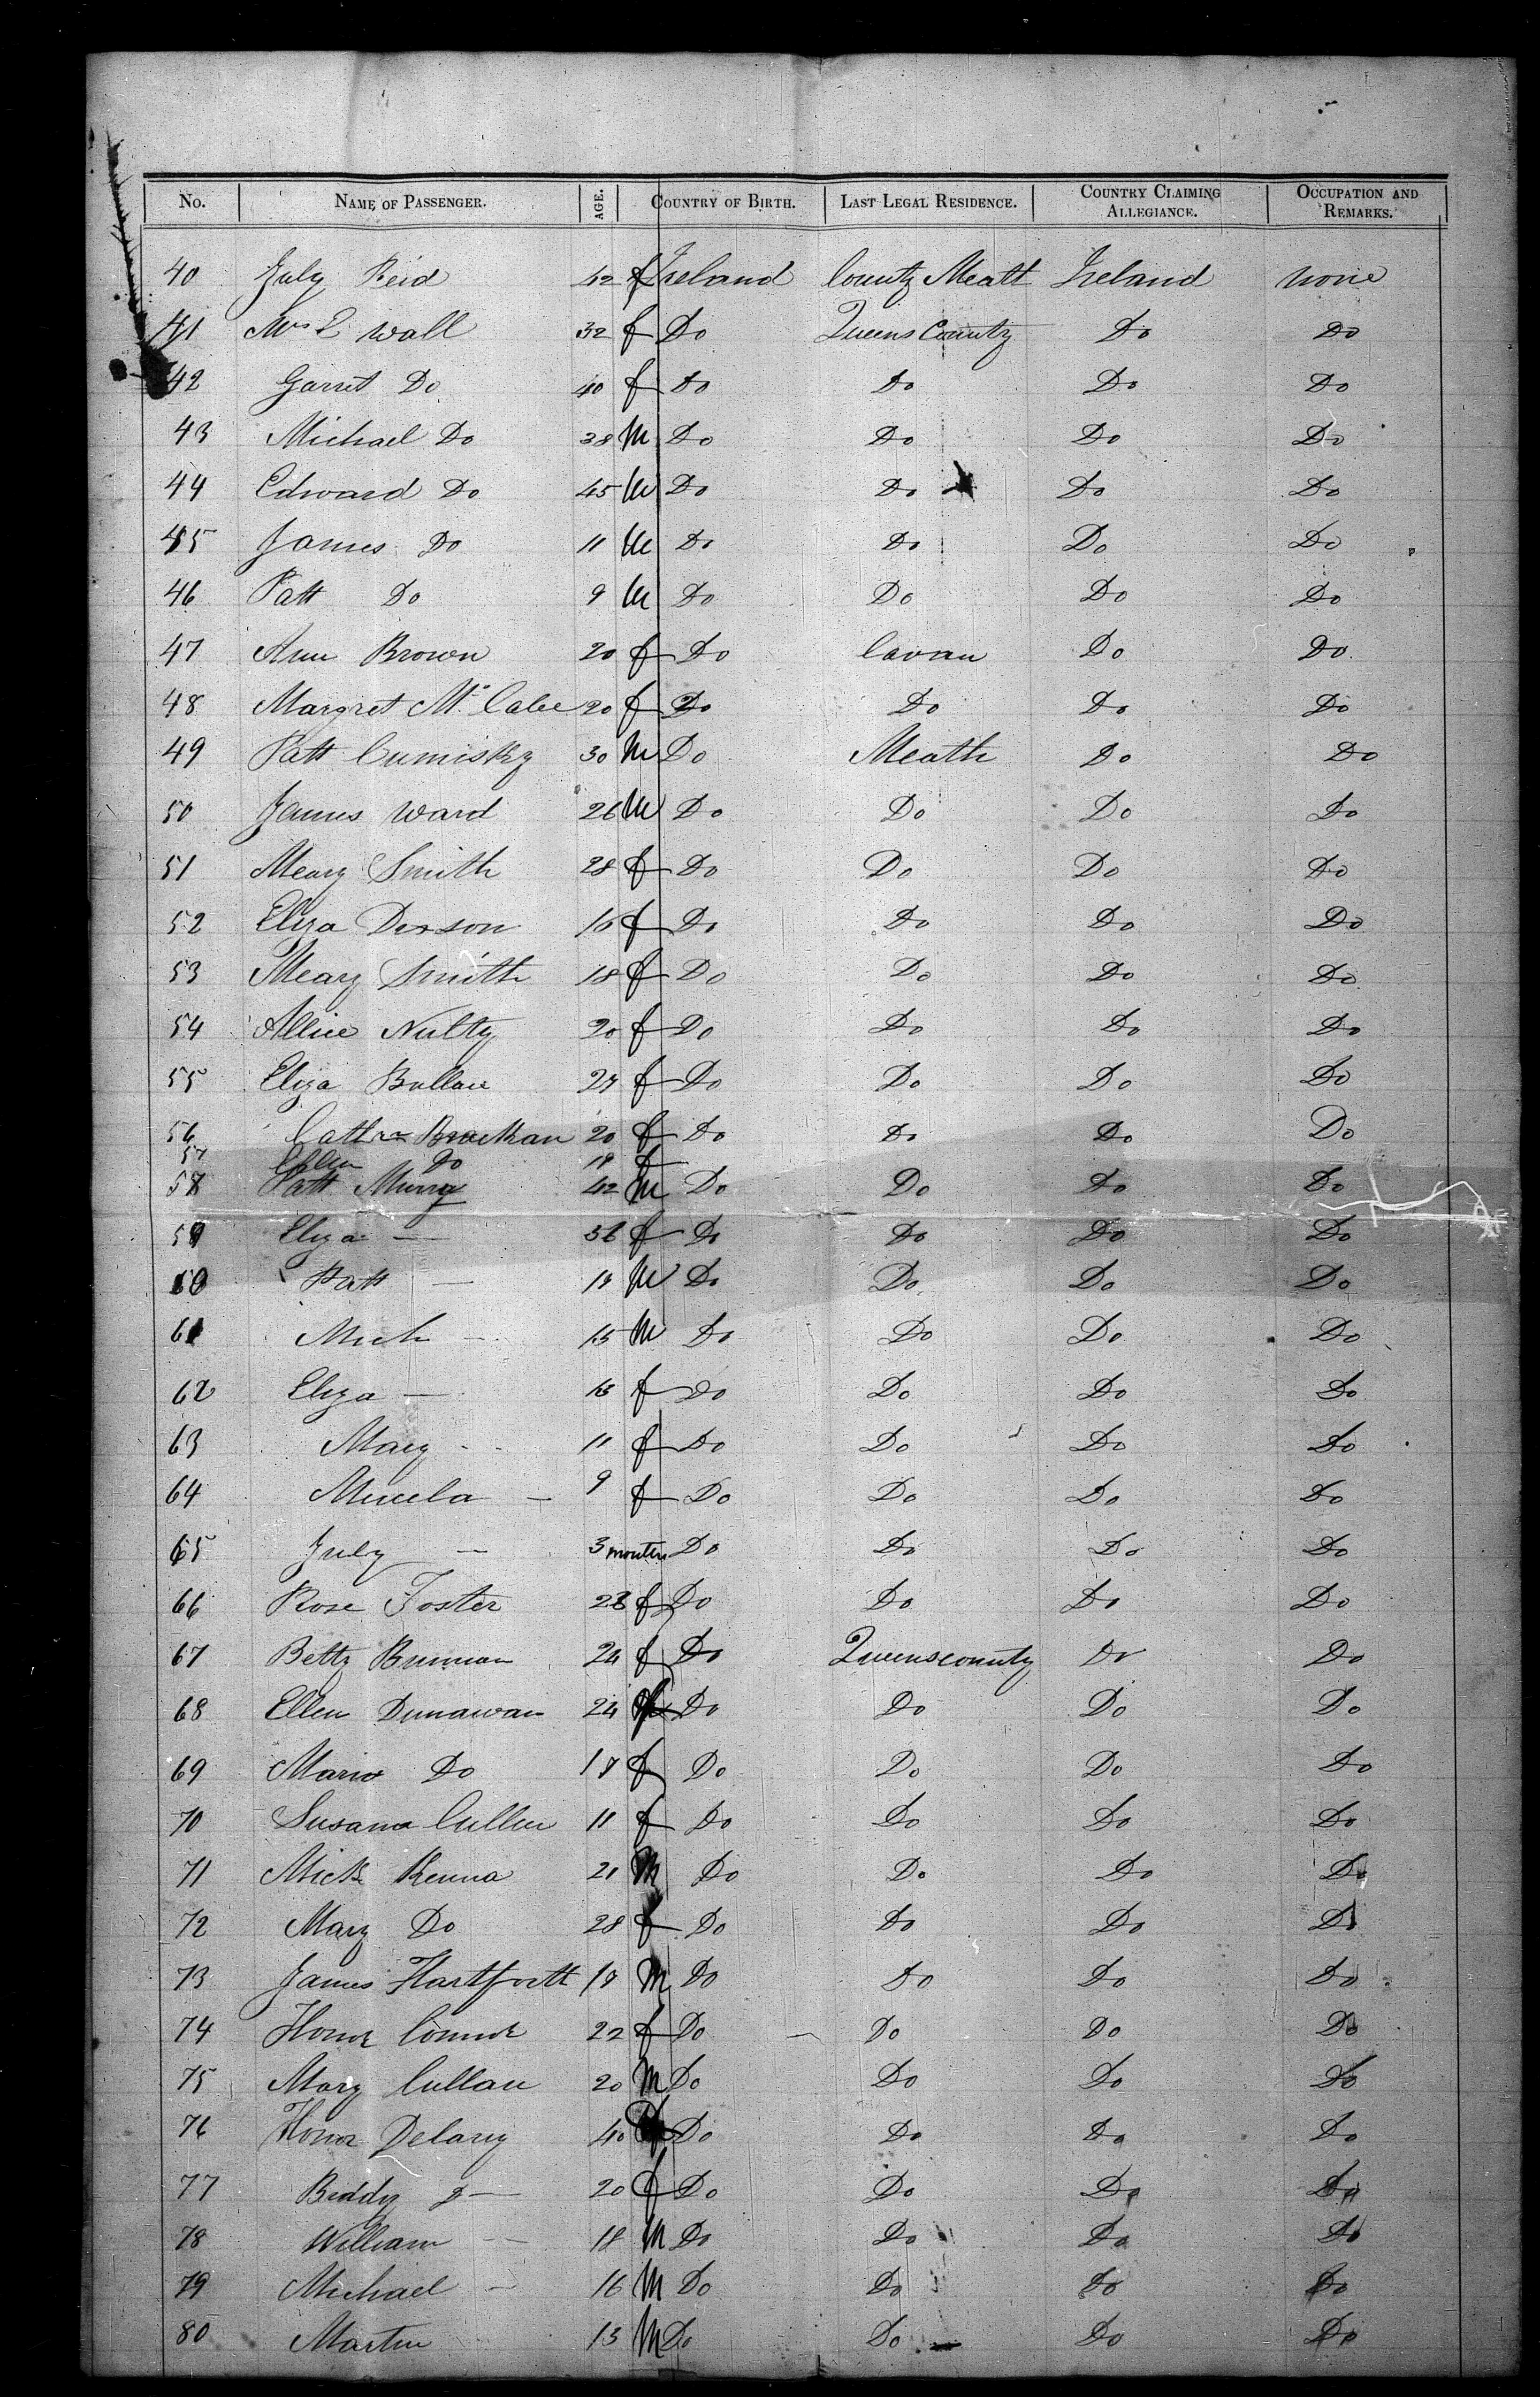 No. NAME OF PASSENGER. AGE. COUNTRY OF BIRTH. LAST LEGAL RESIDENCE. COUNTRY CLAIMING ALLEGIANCE. OCCUPATION AND REMARKS.
40 July Reid 42 f Ireland County Meatt Ireland none
41 Mrs E Wall 32 f Do Queens County Do Do
42 Garret Do 40 f Do Do Do Do
43 Michael Do 38 M Do Do Do Do
44 Edward Do 45 M Do Do Do Do
45 James Do 11 M Do Do Do Do
46 Patt Do 9 M Do Do Do Do
47 Ann Brown 20 f Do Cavan Do Do
48 Margret Mc Cabe 20 f Do Do Do Do
49 Patt Cumisky 30 M Do Meath Do Do
50 James Ward 26 M Do Do Do Do
51 Meary Smith 28 f Do Do Do Do
52 Eliza 16 f Do Do Do Do
53 Meary Smith 18 f Do Do Do Do
54 Allice Nulty 20 f Do Do Do Do
55 Eliza Bullan 27 f Do Do Do Do
56 Cathr Brackan 20 f Do Do Do Do
57 Ellen Do 19 f
58 Patt Murry 42 M Do Do Do Do
59 Eliza — 36 f Do Do Do Do
60 Patt — 19 M Do Do Do Do
61 Mich — 15 M Do Do Do Do
62 Eliza — 13 f Do Do Do Do
63 Mary - 11 f Do Do Do Do
64 — 9 f Do Do Do Do
65 July — 3 months Do Do Do Do
66 Rose Foster 23 f Do Do Do Do
67 Betty Brennan 24 f Do Queenscounty Do Do
68 Ellen Dunawan 24 f Do Do Do Do
69 Maria Do 18 f Do Do Do Do
70 Susana Cullen 11 f Do Do Do Do
71 Mick Kenna 21 M Do Do Do Do
72 Mary Do 28 f Do Do Do Do
73 James Hartfortt 19 M Do Do Do Do
74 Honor Connor 22 f Do Do Do Do
75 Mary Cullan 20 M Do Do Do Do
76 Honor Delany 40 f Do Do Do Do
77 Biddy — 20 f Do Do Do Do
78 William — 18 M Do Do Do Do
79 Michael — 16 M Do Do Do Do
80 Martin 13 M Do Do Do Do